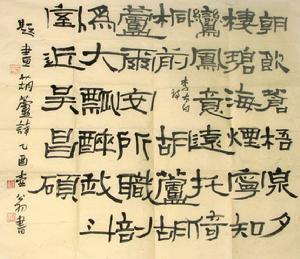 朝飲蒼梧泉夕
棲碧海煙寧知
鸞鳳意遠托椅
桐前李太白詩胡蘆胡
蘆爾安所職剖
為大瓢醉我斗
室近吳昌碩
題畫葫蘆詩乙酉書